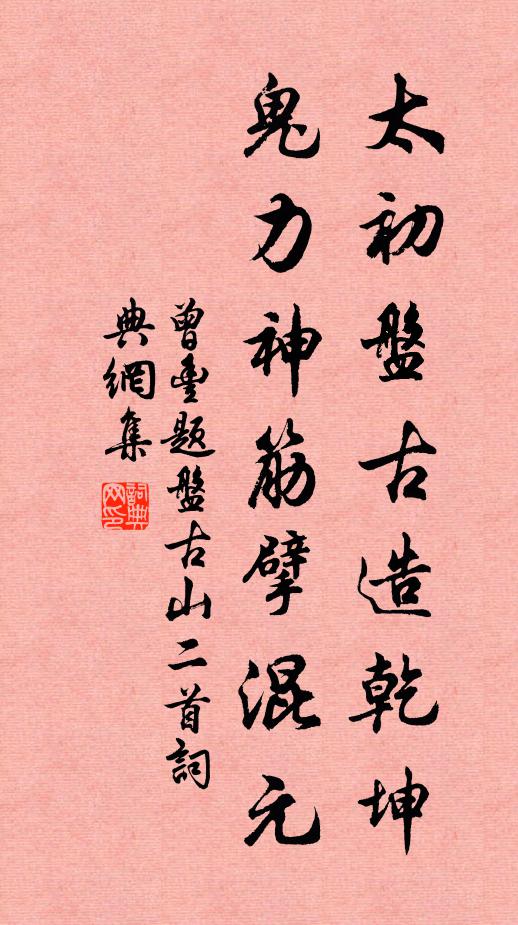 太初盤古造乾坤
鬼力神筋擘混元
曾豐題盤古山二首詞
典網集
詞典網印